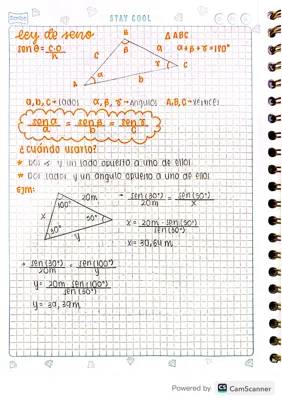 STAY COOL
Ley de seno
Δ ABC
sen θ = c.o / h
α + β + γ = 180°
B
β
c
a
A
α
γ
C
b
a, b, c → lados   α, β, γ → Angulos   A, B, C → vértices
sen α / a = sen β / b = sen γ / c
¿cuándo usarla?
* Dos ∢ y un lado opuesto a uno de ellos
* Dos lados y un ángulo opuesto a uno de ellos
Ejm:
20m
100°
50°
30°
x
y
sen(30°) / 20m = sen(50°) / x
x = 20m · sen(50°) / sen(30°)
x = 30,64 m
→ sen(30°) / 20m = sen(100°) / y
y = 20m · sen(100°) / sen(30°)
y = 39,39m
Powered by CS CamScanner